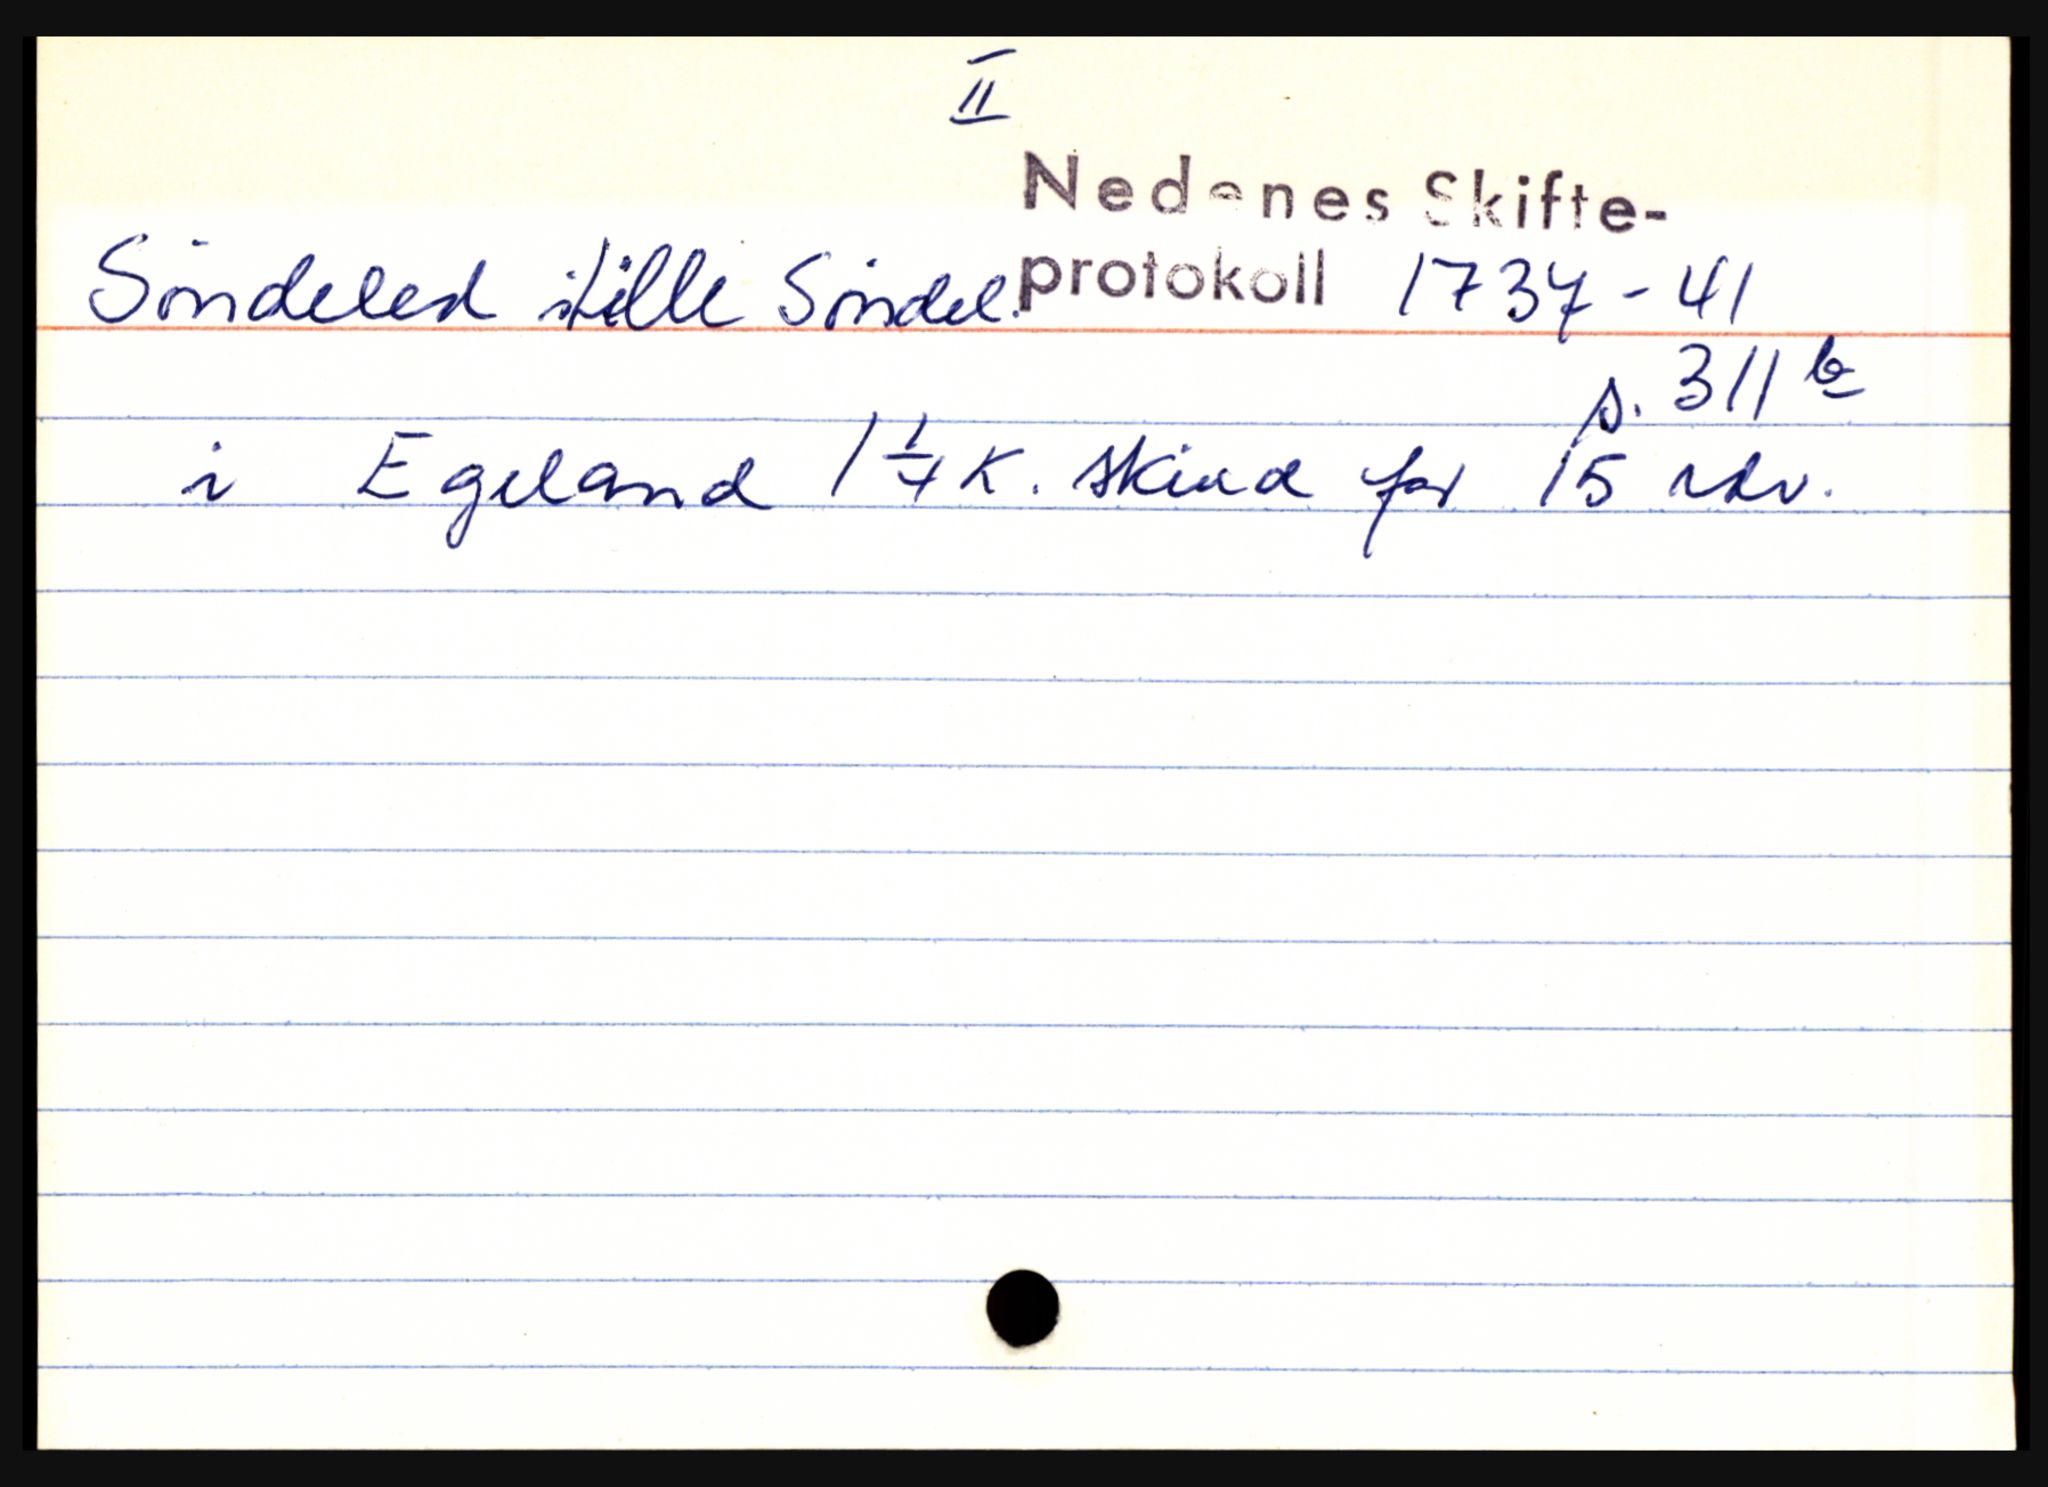 II
Nedenes Skifte-
Søndeled lille Søndel. protokoll 1737-41
s. 311 b
i Egeland 1 1/4 K. skind for 15 rdr.